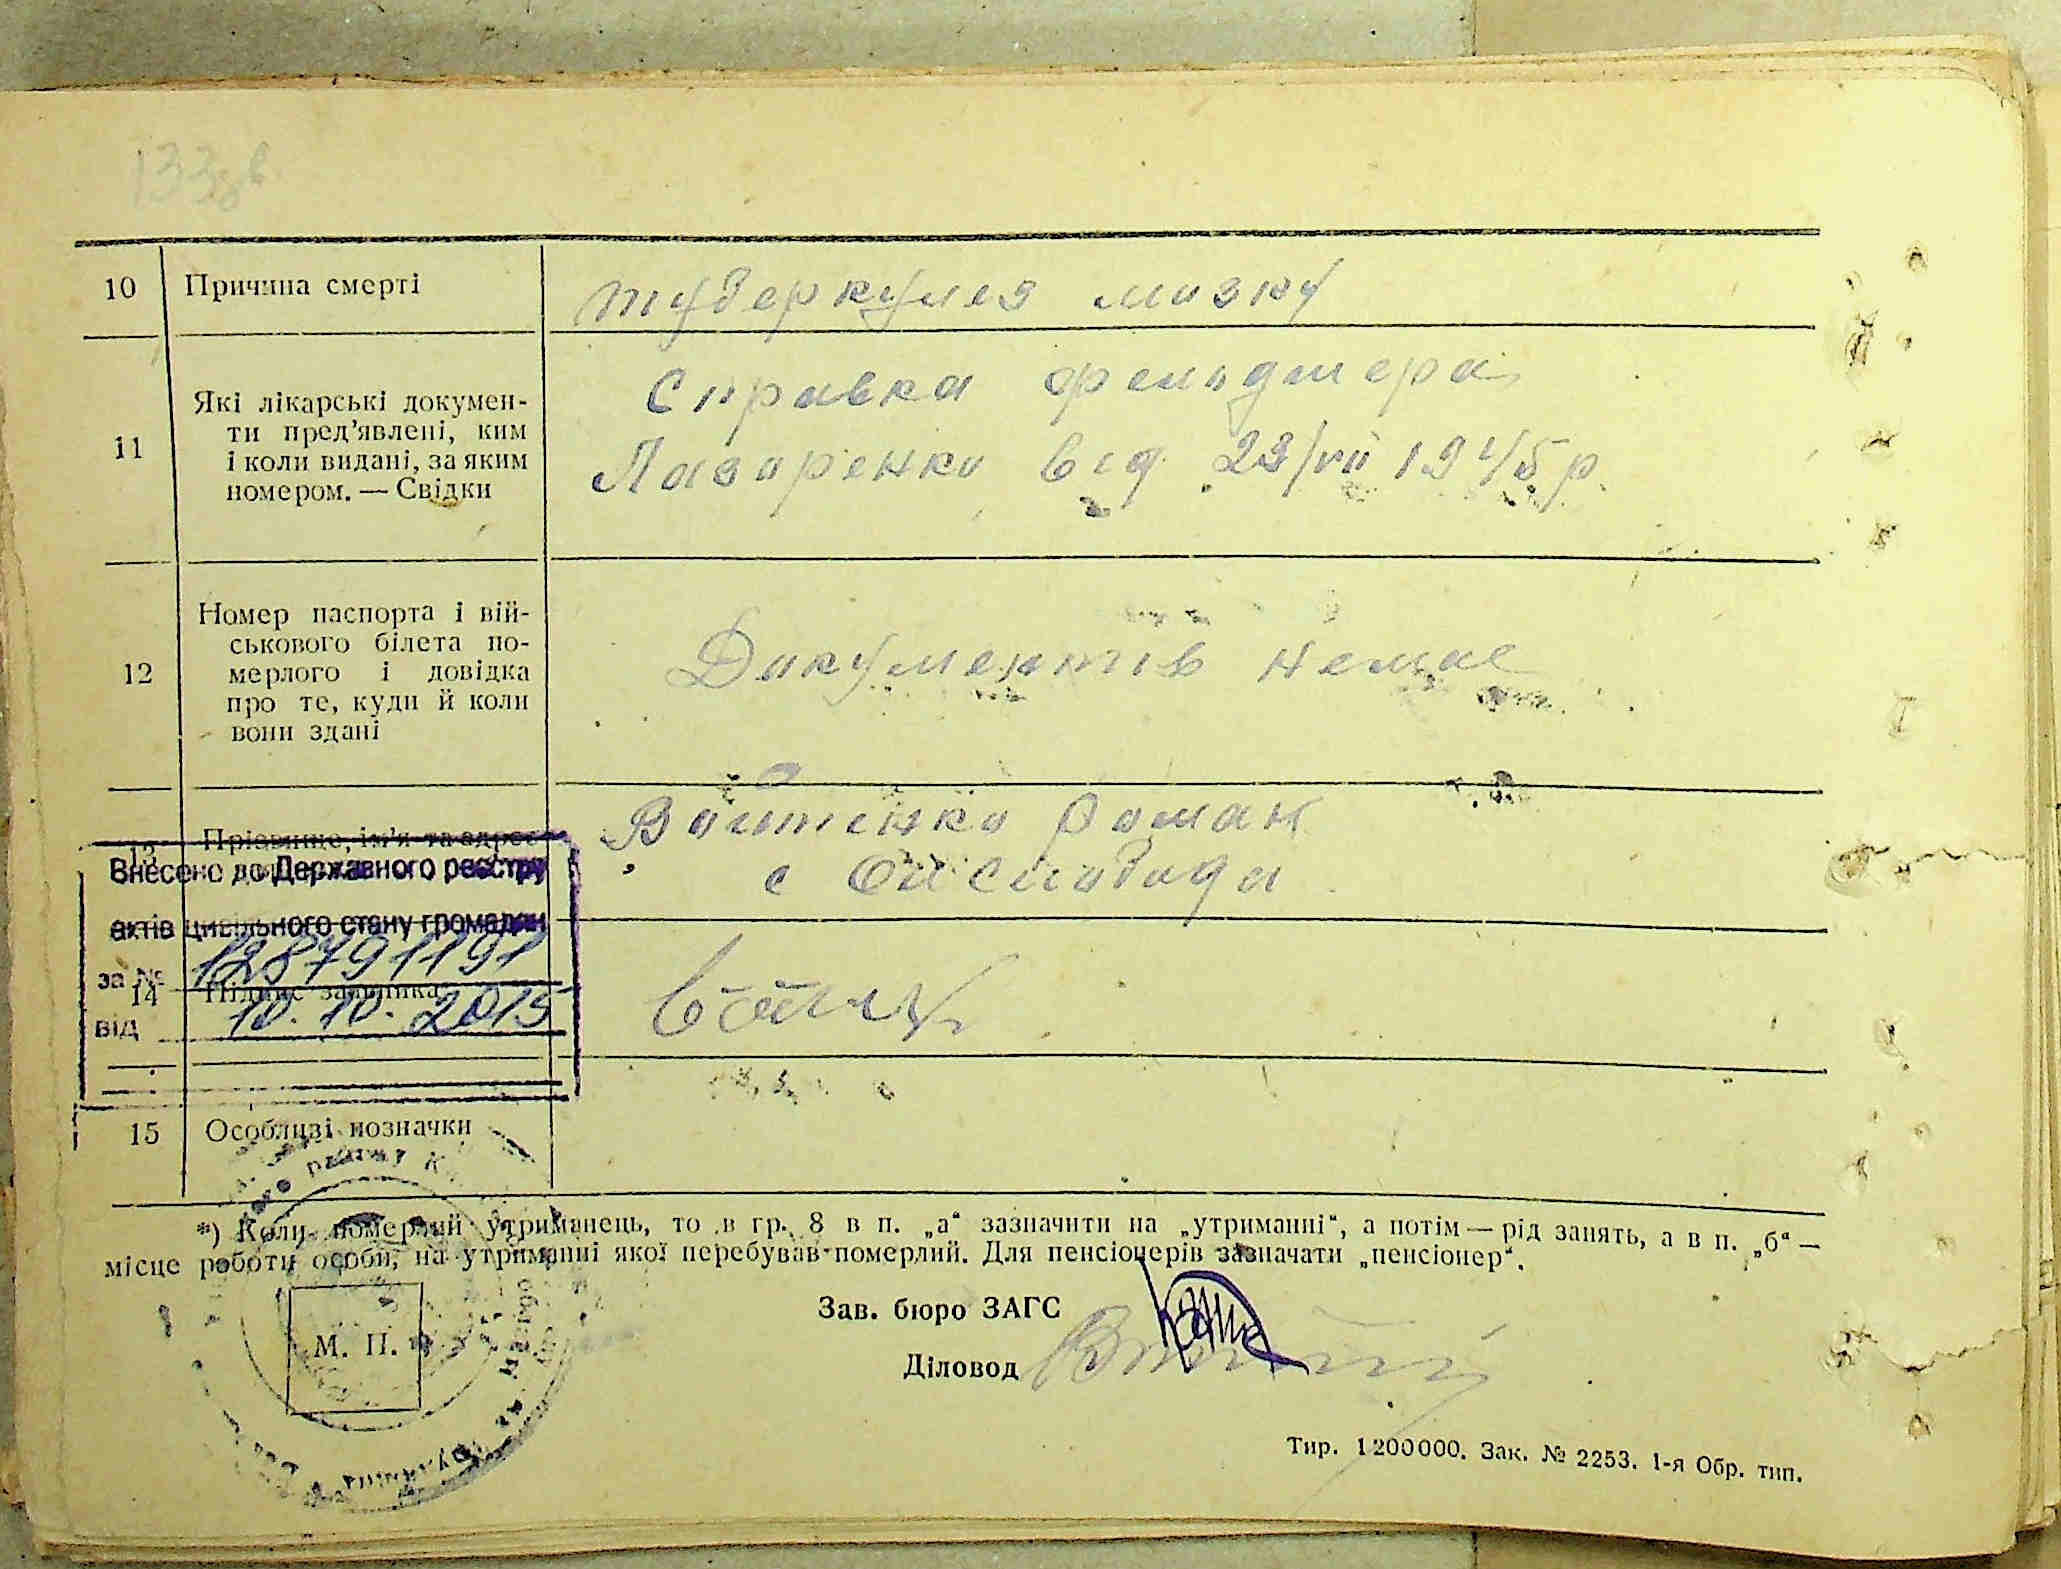 133зв
10 Причина смерті туберкулез мозку
11 Які лікарські докумен-
ти пред’явлені, ким
і коли видані, за яким
номером. — Свідки
Справка фельдшера
Лазаренко від 23/VII 1945 р.
12 Номер паспорта і вій-
ськового білета по-
мерлого і довідка
про те, куди й коли
вони здані
Документів немає
13 Прізвище, ім’я та адрес
Войтенко Роман
с
Внесено до Державного реєстру
актів цивільного стану громадян
за № 128791191
від 10.10.2015
14 Підпис заявника
15 Особливі позначки
*) Коли померлий утриманець, то в гр. 8 в п. „а“ зазначити на „утриманні“, а потім — рід занять, а в п. „б“ —
місце роботи особи, на утриманні якої перебував померлий. Для пенсіонерів зазначати „пенсіонер“.
Зав. бюро ЗАГС
М. П.
Діловод
Тир. 1200000. Зак. № 2253. 1-я Обр. тип.